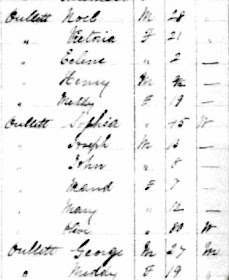 Oullett Noel M 28 "
" Victoria F 21 "
" Eclene " 2 —
" Henry M —
" F 19 —
Oullett Sophia " 45 W
" Joseph M 13 —
" John " 8 —
" Maud F 7 —
" Mary " 12 —
" Olive " 80 W
Oullett George M 27 M
" F 19 "